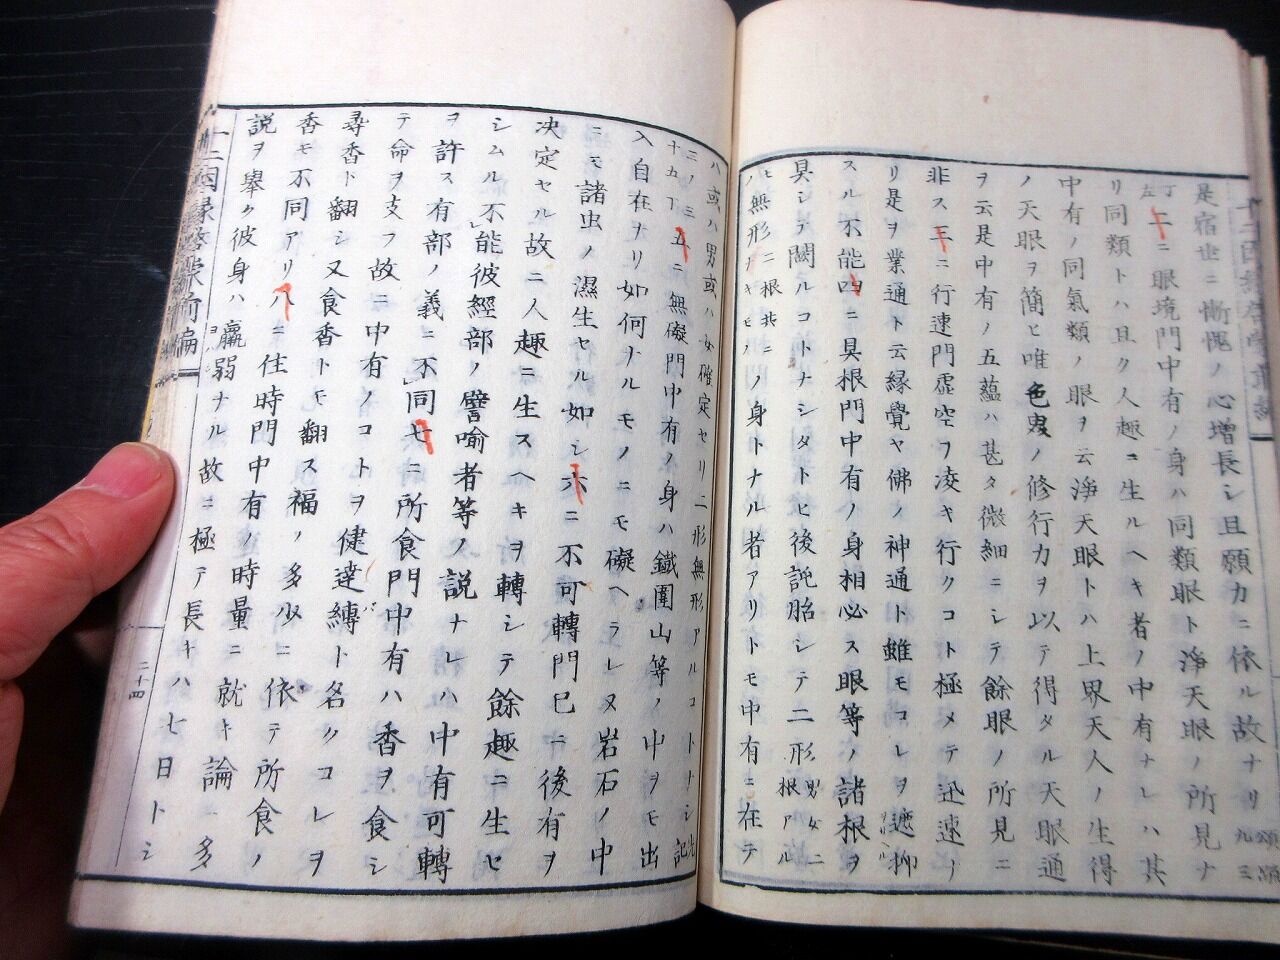 是宿世ニ慚愧ノ心增長シ且願力ニ依ル故ナリ
二ニ眼境門中有ノ身ハ同類眼ト淨天眼ノ所見ナ
リ同類トハ且ク人趣ニ生ルヘキ者ノ中有ナレハ其
中有ノ同氣類ノ眼ヲ云淨天眼トハ上界天人ノ生得
ノ天眼ヲ簡ヒ唯色界ノ修行力ヲ以テ得タル天眼通
ヲ云是中有ノ五蘊ハ甚タ微細ニシテ餘眼ノ所見ニ
非ス三ニ行速門虛空ヲ凌キ行クコト極メテ迅速ナ
リ是ヲ業通ト云緣覺ヤ佛ノ神通ト雖モコレヲ遮抑
スル不能四ニ具根門中有ノ身相必ス眼等ノ諸根ヲ
具シテ闕ルコトナシタトヒ後託胎シテ二形男女二根アル
ヒ無形二根共ニナキモノノ身トナル者アリトモ中有ニ在テ
ハ或ハ男或ハ女確定セリ二形無形アルコトナシ
五ニ無礙門中有ノ身ハ鐵圍山等ノ中ヲモ出
入自在ヲリ如何ナルモノニモ礙ヘラレヌ岩石ノ中
ニモ諸虫ノ濕生セル如シ六ニ不可轉門已ニ後有ヲ
決定セル故ニ人趣ニ生スヘキヲ轉シテ餘趣ニ生セ
シムル不能彼經部ノ譬喻者等ノ說ナレハ中有可轉
ヲ許ス有部ノ義ニ不同七ニ所食門中有ハ香ヲ食シ
テ命ヲ支フ故ニ中有ノコトヲ健達縛ト名クコレヲ
尋香ト翻シ又食香トモ翻ス福ノ多少ニ依テ所食ノ
香モ不同アリ八ニ住時門中有ノ時量ニ就キ論多
說ヲ擧ク彼身ハ羸弱ナル故ニ極テ長キハ七日トシ
十二因緣啓蒙前編
二十四